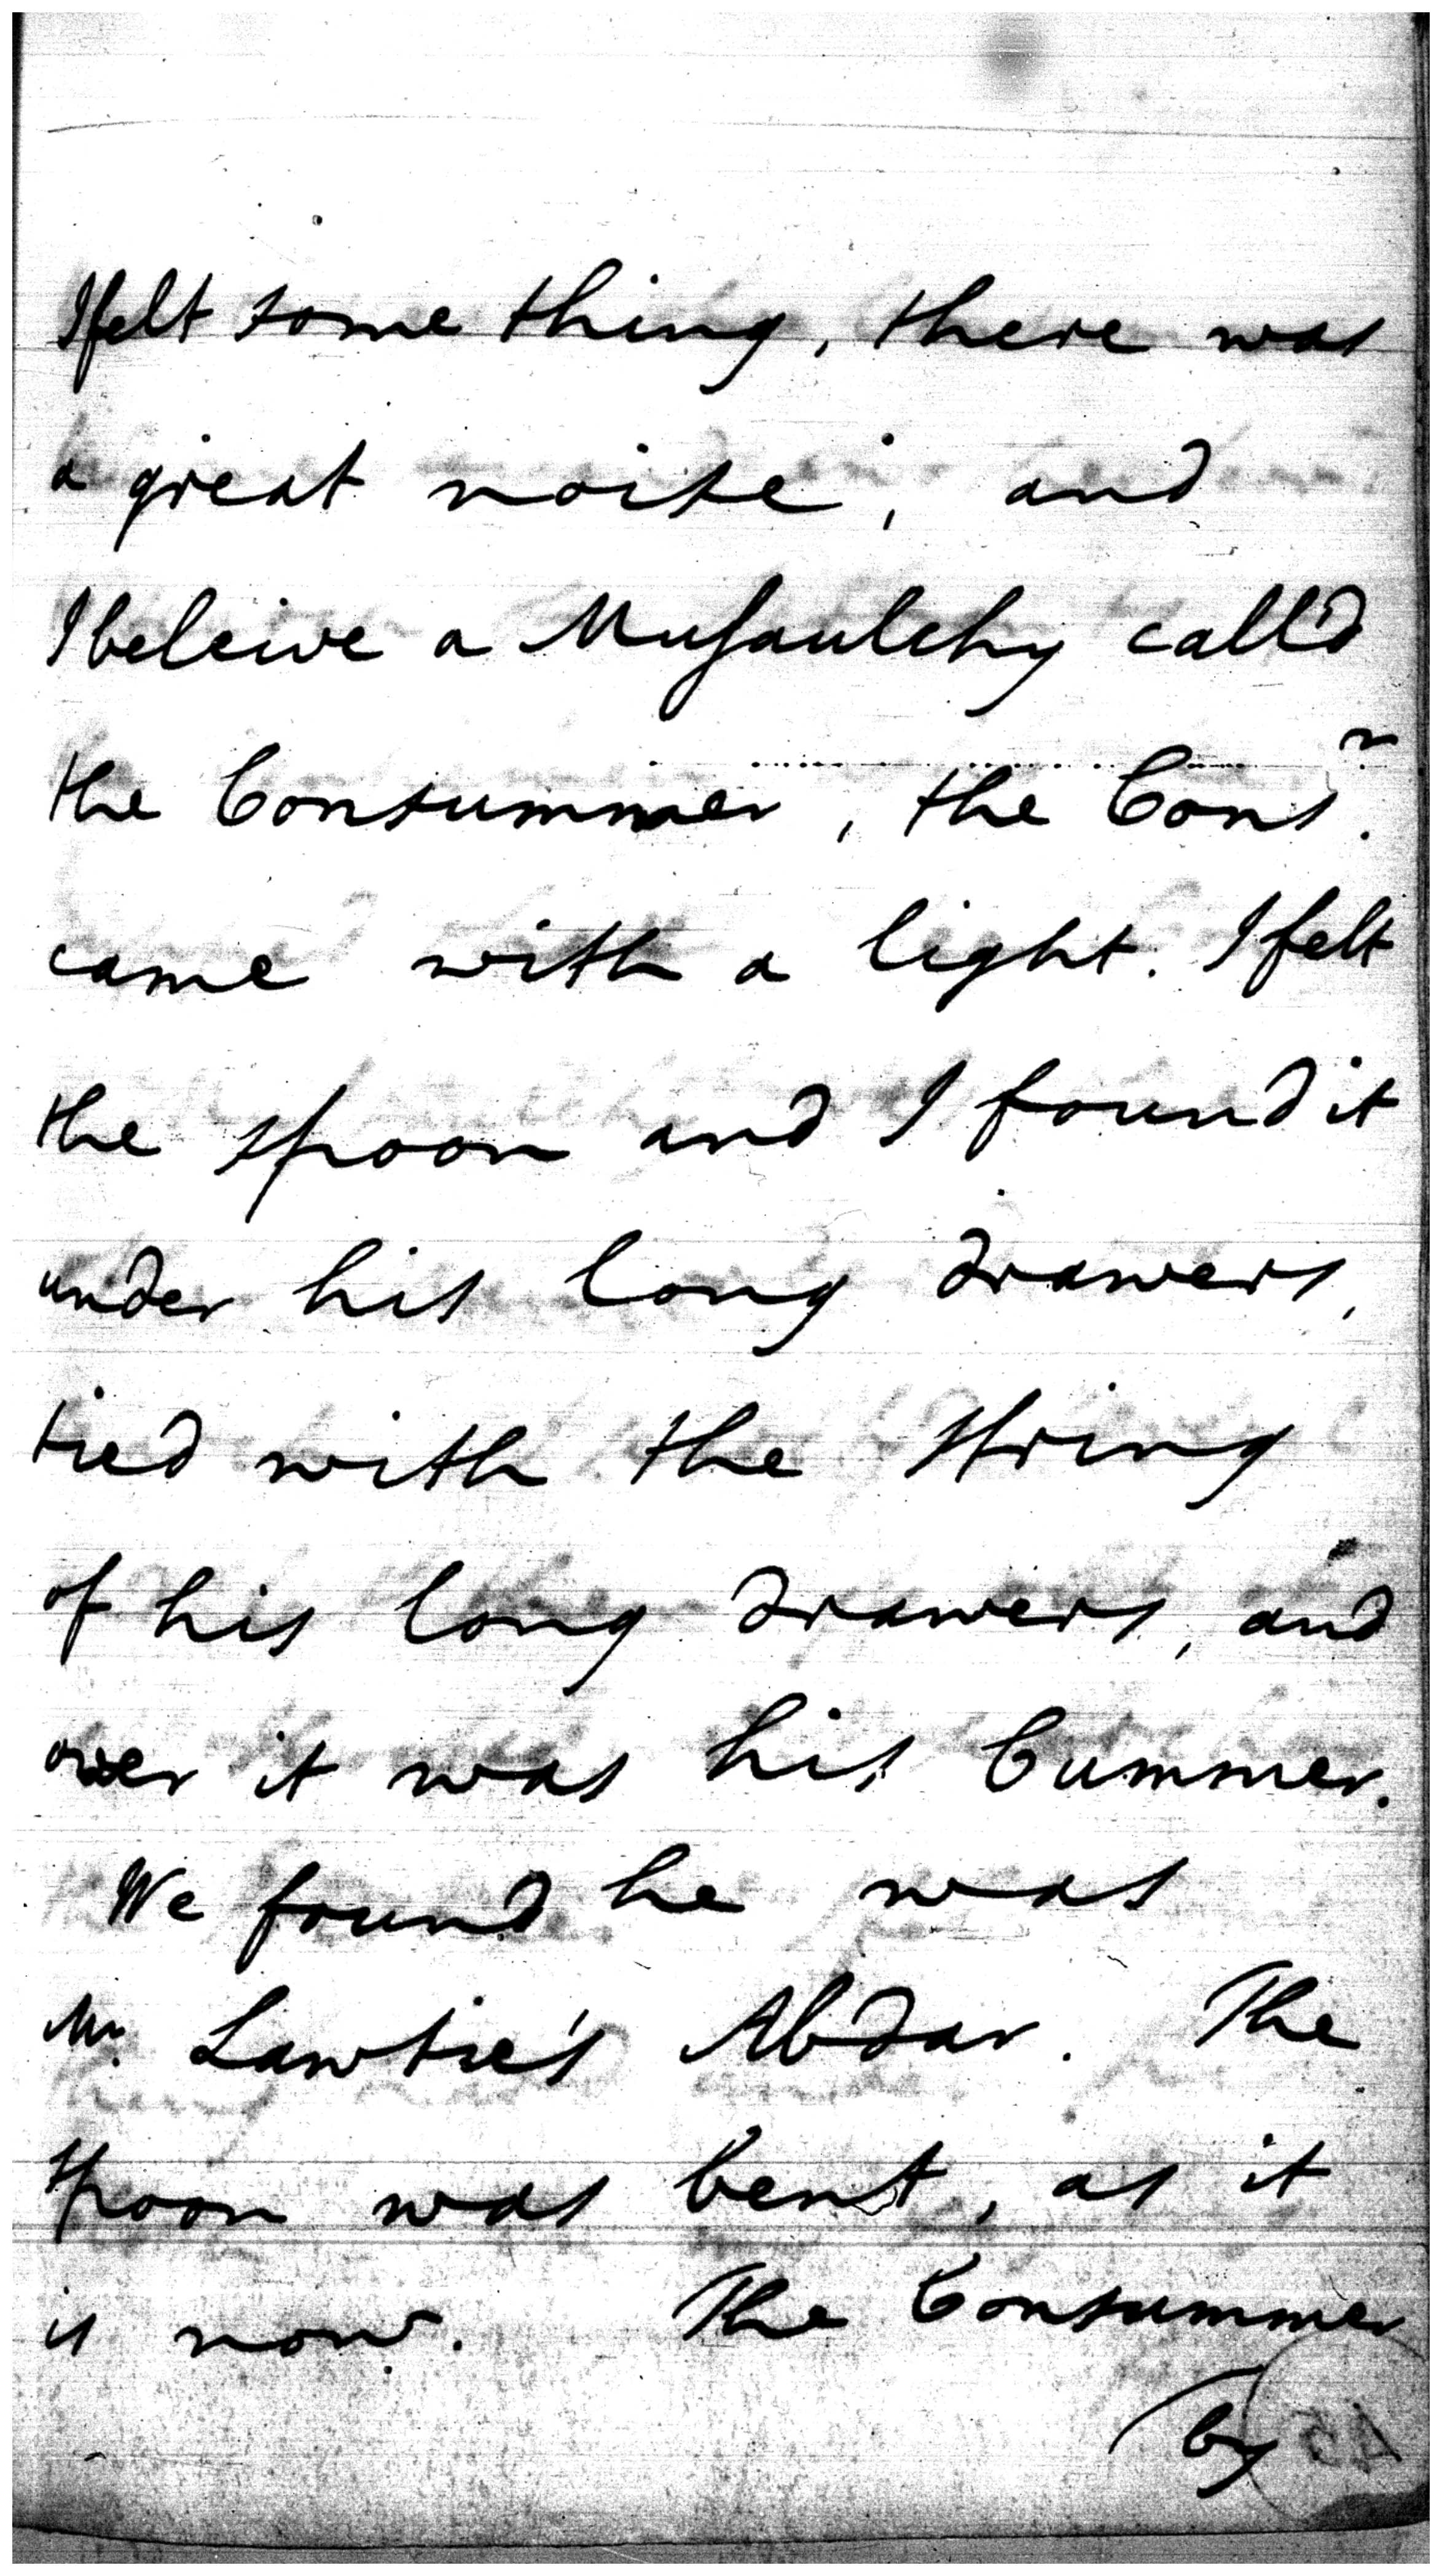 I felt some thing, there was
a great noise, and
I beleive a Mussaulchy call'd
the Consummer, the Cons.r
came with a light. I felt
the spoon and I found it
under his long drawers,
tied with the string
of his long drawers, and
over it was his Cummer.
We found he was
Mr. Lawtie's Abdar. The
spoon was bent, as it
is now. The Consummer
by